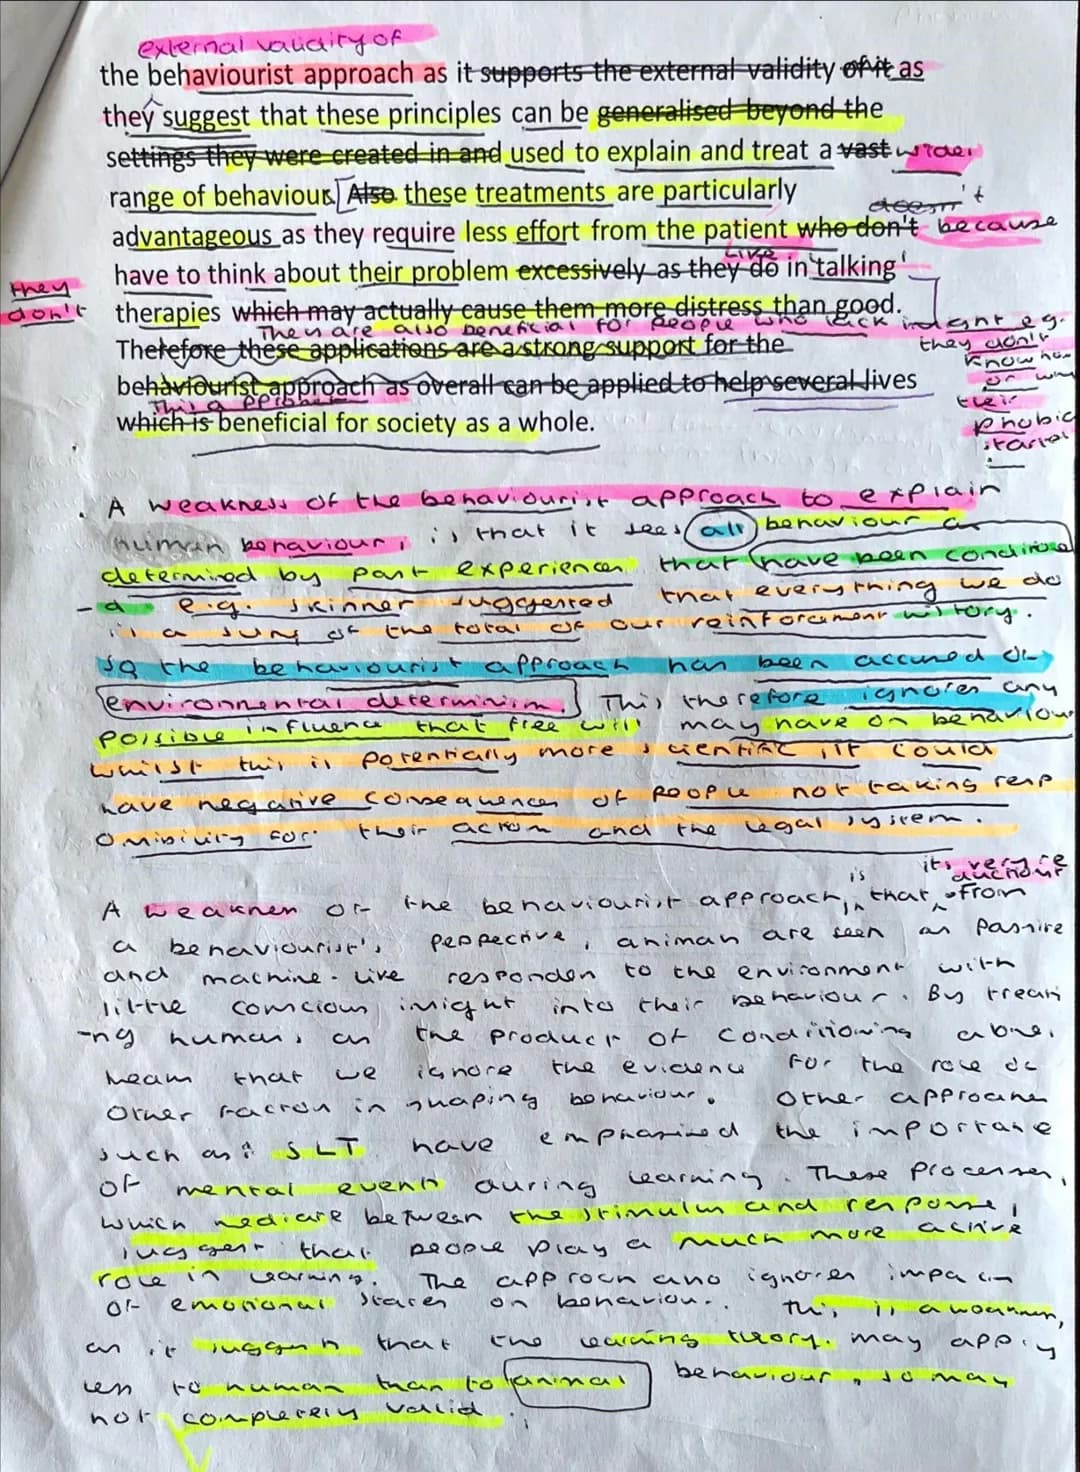 external validity of
the behaviourist approach as it supports the external validity of it as
they suggest that these principles can be generalised beyond the
settings they were created in and used to explain and treat a vast wider
range of behaviour. Also these treatments are particularly
doesn't
advantageous as they require less effort from the patient who don't because
they don't
have to think about their problem excessively as they do in 'talking'
like
therapies which may actually cause them more distress than good.
They are also beneficial for people who lack insight e.g.
they don't
know how
or why
their
phobia
started
Therefore these applications are a strong support for the
behaviourist approach as overall can be applied to help several lives
This
which is beneficial for society as a whole.
. A weakness of the behaviourist approach to explain
human behaviour, is that it sees all behaviour as
determined by past experiences that have been conditione
-d e.g. Skinner suggested that everything we do
is a sum of the total of our reinforcement history.
So the behaviourist approach has been accused of
environmental determinism. This therefore ignores any
possible influence that free will may have on behaviour
whilst this is potentially more scientific, it could
have negative consequences of people not taking resp
onsibility for their action and the legal system.
its very re
ductionist
A weakness of the behaviourist approach, is that from
a behaviourist's perspective, animals are seen as passive
and machine-like responders to the environment with
little conscious insight into their behaviour. By treati
-ng humans as the product of conditioning alone,
means that we ignore the evidence for the role of
other factors in shaping behaviour. Other approaches
such as SLT have emphasised the importance
of mental events during learning. These processes,
which mediate between the stimulus and response,
suggest that people play a much more active
role in learning. The approach also ignores impact
of emotional states on behaviour. this is a weakness,
as it suggests that the learning theory may apply
less to human than to animal behaviour, so may
not completely valid.